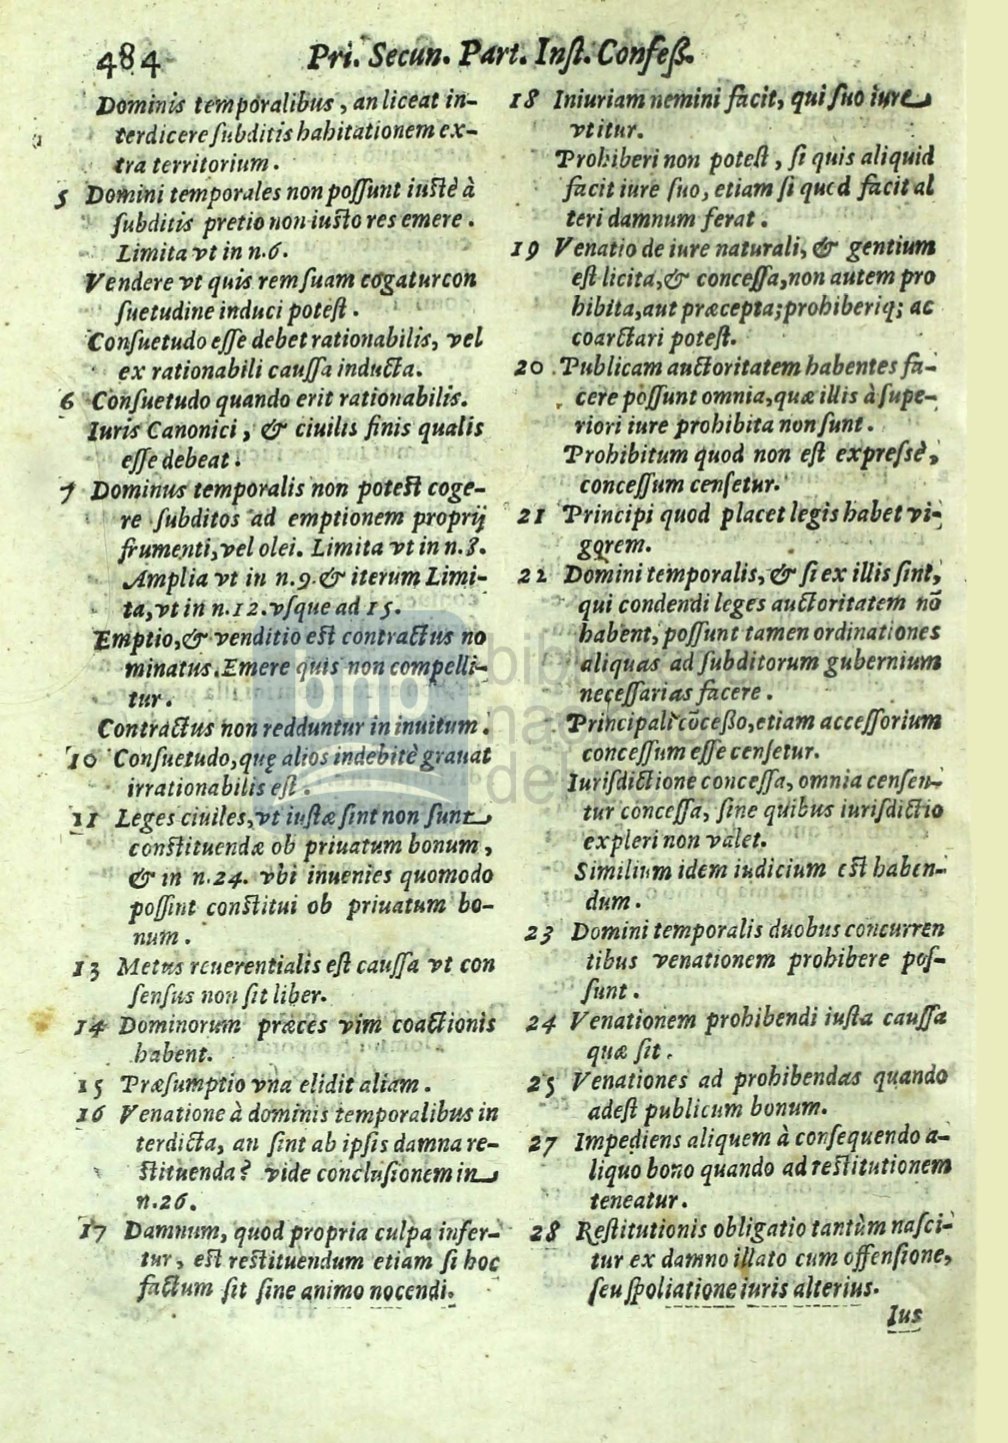 484 Pri. Secun. Part. Inſt. Confeß.
Dominis temporalibus, an liceat in-
terdicere ſubditis habitationem ex-
tra territorium.
5 Domini temporales non poſſunt iuſtè à
ſubditis pretio non iuſto res emere.
Limita vt in n.6.
Vendere vt quis rem ſuam cogatur con
ſuetudine induci poteſt.
Conſuetudo eſſe debet rationabilis, vel
ex rationabili cauſſa inducta.
6 Conſuetudo quando erit rationabilis.
Iuris Canonici, & ciuilis finis qualis
eſſe debeat.
7 Dominus temporalis non poteſt coge-
re ſubditos ad emptionem proprij
frumenti, vel olei. Limita vt in n.8.
Amplia vt in n.9. & iterum Limi-
ta, vt in n.12. vſque ad 15.
Emptio, & venditio eſt contractus no
minatus. Emere quis non compelli-
tur.
Contractus non redduntur in inuitum.
10 Conſuetudo, quę alios indebitè grauat
irrationabilis eſt.
11 Leges ciuiles, vt iuſtæ ſint non ſunt
conſtituendæ ob priuatum bonum,
& in n.24. vbi inuenies quomodo
poſſint conſtitui ob priuatum bo-
num.
13 Metus reuerentialis eſt cauſſa vt con
ſenſus non ſit liber.
14 Dominorum præces vim coactionis
habent.
15 Præſumptio vna elidit aliam.
16 Venatione à dominis temporalibus in
terdicta, an ſint ab ipſis damna re-
ſtituenda? vide concluſionem in
n.26.
17 Damnum, quod propria culpa infer-
tur, eſt reſtituendum etiam ſi hoc
factum ſit ſine animo nocendi.
18 Iniuriam nemini facit, qui ſuo iure
vtitur.
Prohiberi non poteſt, ſi quis aliquid
facit iure ſuo, etiam ſi quod facit al
teri damnum ferat.
19 Venatio de iure naturali, & gentium
eſt licita, & conceſſa, non autem pro
hibita, aut præcepta; prohiberiq; ac
coarctari poteſt.
20 Publicam auctoritatem habentes fa-
cere poſſunt omnia, quæ illis à ſupe-
riori iure prohibita non ſunt.
Prohibitum quod non eſt expreſsè,
conceſſum cenſetur.
21 Principi quod placet legis habet vi-
gorem.
22 Domini temporalis, & ſi ex illis ſint,
qui condendi leges auctoritatem nō
habent, poſſunt tamen ordinationes
aliquas ad ſubditorum gubernium
neceſſarias facere.
Principali cōceßo, etiam acceſſorium
conceſſum eſſe cenſetur.
Iuriſdictione conceſſa, omnia cenſen-
tur conceſſa, ſine quibus iuriſdictio
expleri non valet.
Similium idem iudicium eſt haben-
dum.
23 Domini temporalis duobus concurren
tibus venationem prohibere poſ-
ſunt.
24 Venationem prohibendi iuſta cauſſa
quæ ſit.
25 Venationes ad prohibendas quando
adeſt publicum bonum.
27 Impediens aliquem à conſequendo a-
liquo bono quando ad reſtitutionem
teneatur.
28 Reſtitutionis obligatio tantùm naſci-
tur ex damno illato cum offenſione,
ſeu ſpoliatione iuris alterius.
Ius
bnp